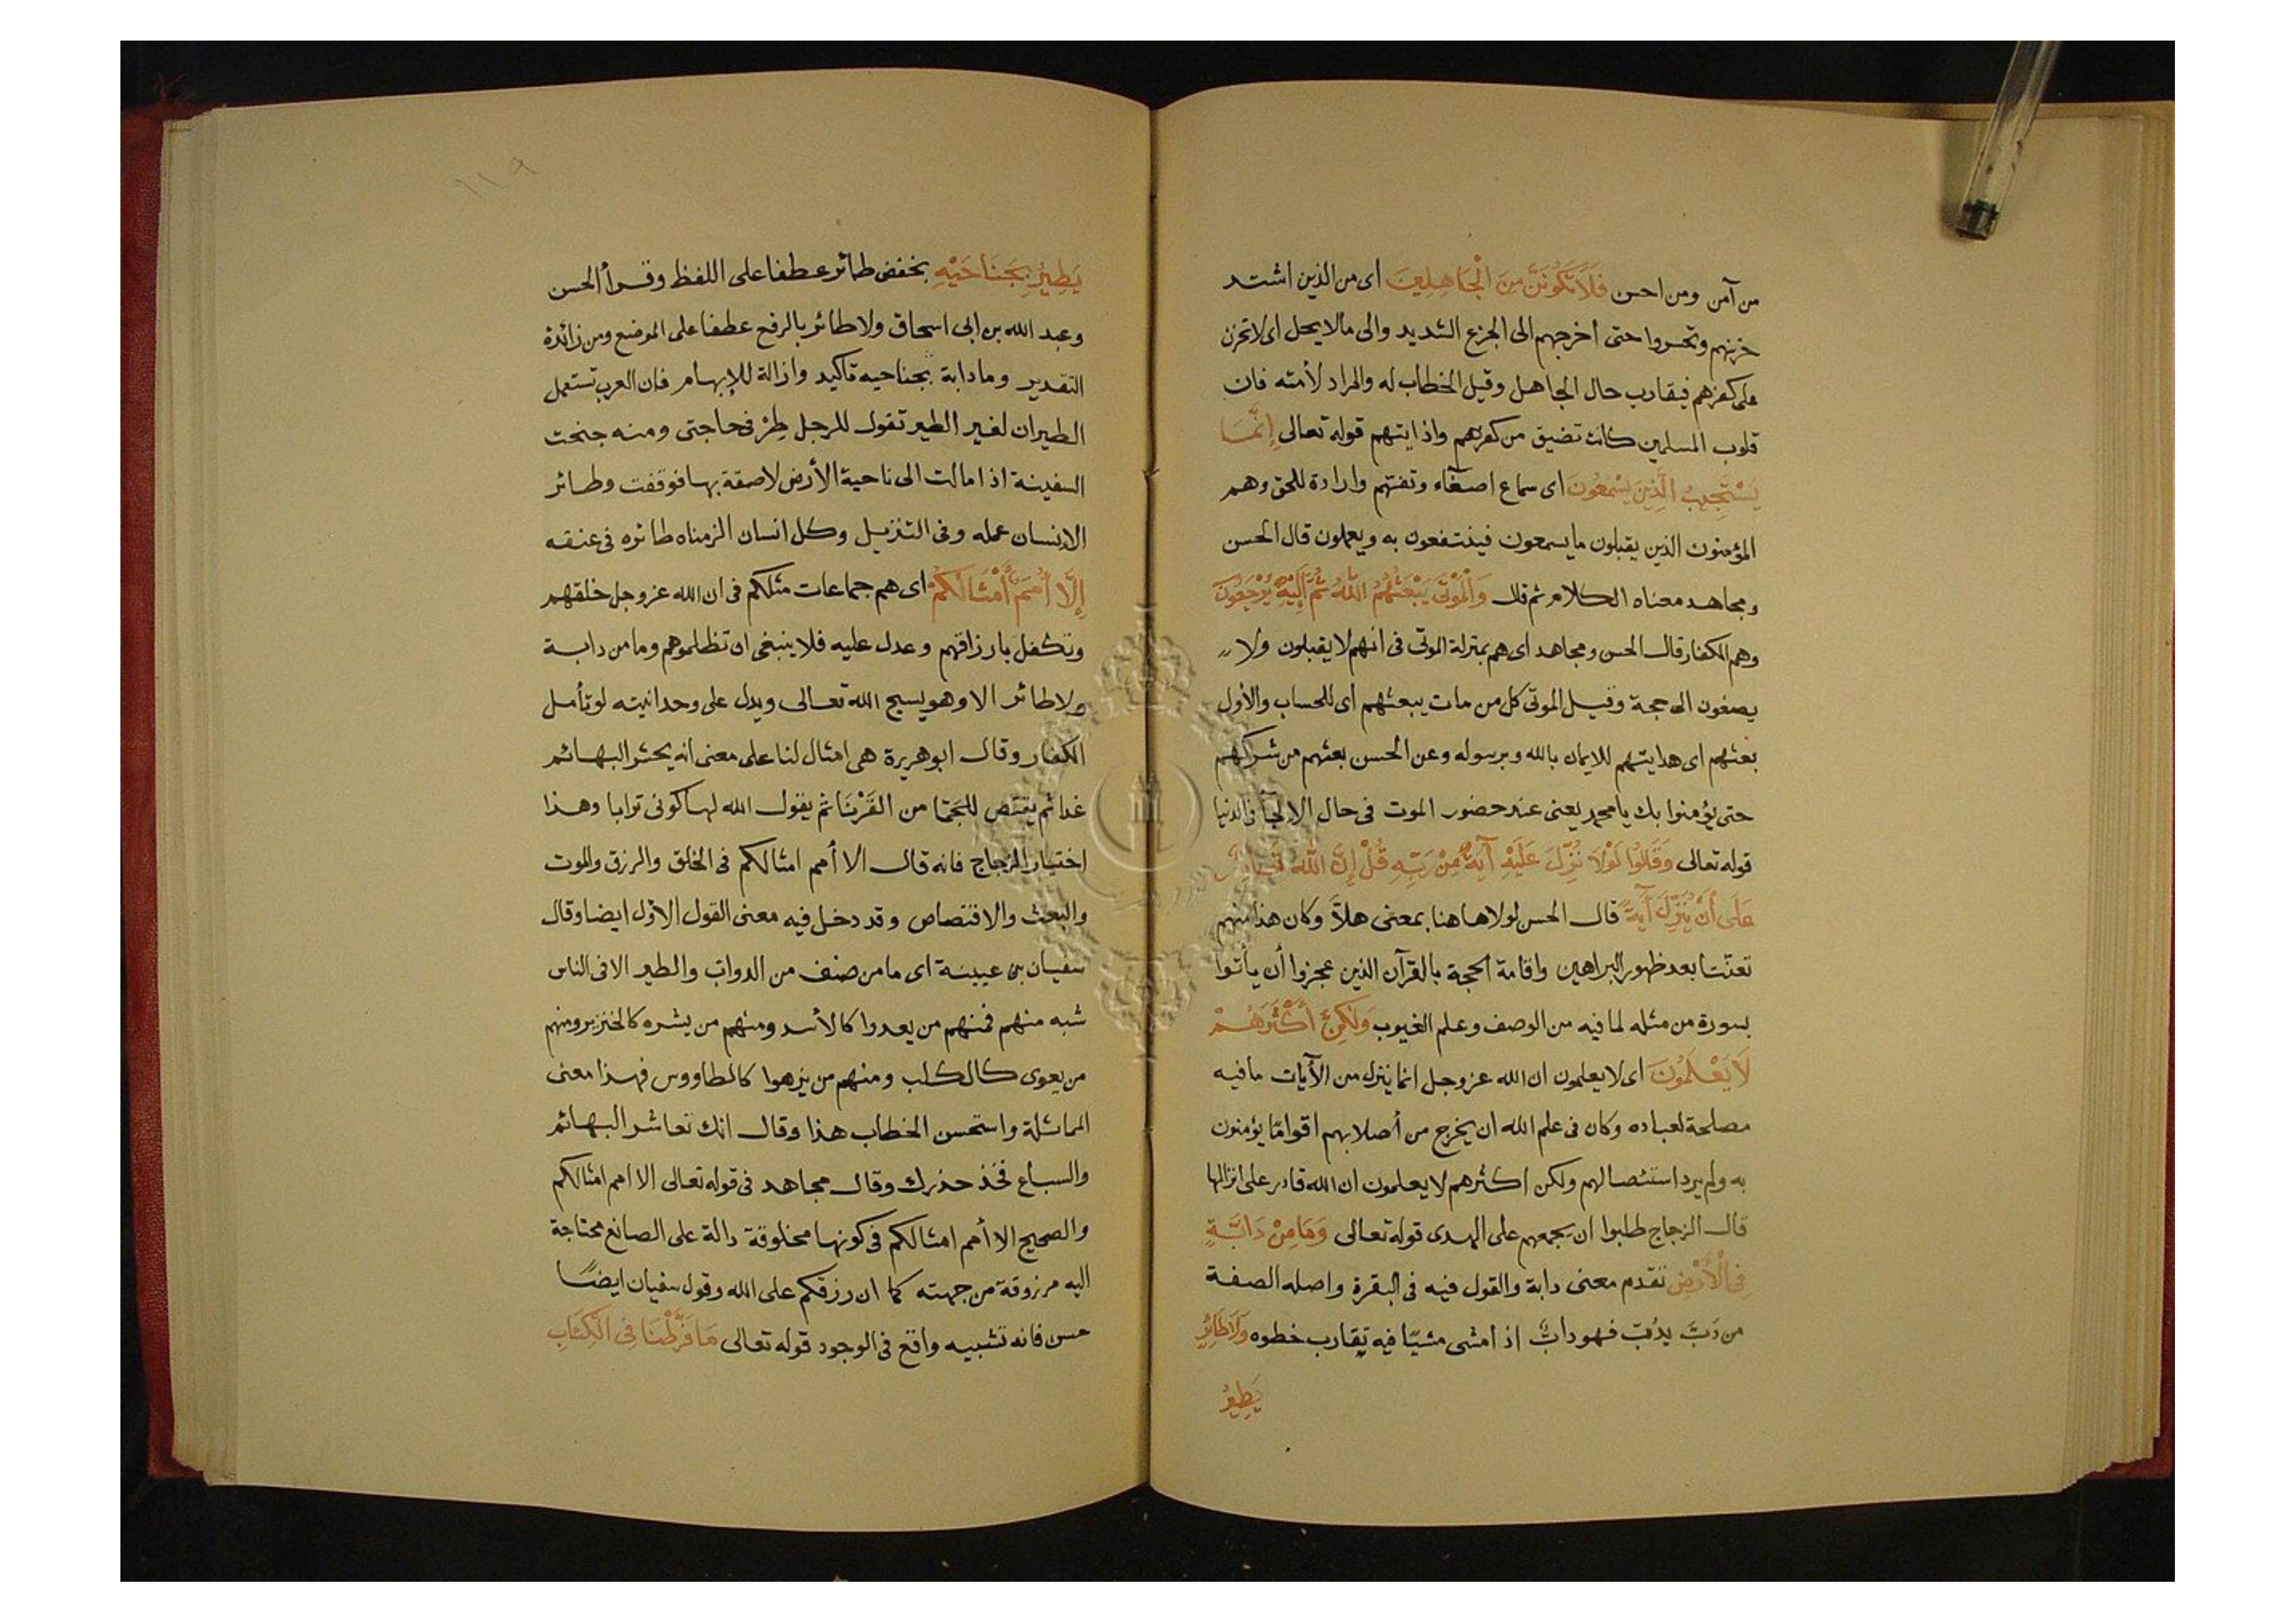 من آمن ومن احسن فَلَا تَكُونَنَّ مِنَ الْجَاهِلِينَ اى من الذين اشتد
حزنهم وتحسروا حتى أخرجهم الى الجزع الشديد والى مالا يحل اى لا تحزن
على كفرهم فيقارب حال الجاهل وقيل الخطاب له والمراد لأمته فان
قلوب المسلمين كانت تضيق من كفرهم واذايتهم قوله تعالى إِنَّمَا
يَسْتَجِيبُ الَّذِينَ يَسْمَعُونَ اى سماع اصغآء وتفهّم وارادة للحق وهم
المؤمنون الذين يقبلون ما يسمعون فينتفعون به ويعملون قال الحسن
ومجاهد معناه الكلام ثم قال وَالْمَوْتَى يَبْعَثُهُمُ اللَّهُ ثُمَّ إِلَيْهِ يُرْجَعُونَ
وهم الكفار قال الحسن ومجاهد اى هم بمنزلة الموتى فى انهم لا يقبلون ولا
يصغون الى حجة وقيل الموتى كل من مات يبعثهم اى للحساب والأول
بعثهم اى هدايتهم للايمان بالله وبرسوله وعن الحسن بعثهم من شركهم
حتى يؤمنوا بك يا محمد يعنى عند حضور الموت فى حال الإلجآ فى الدنيا
قوله تعالى وَقَالُوا لَوْلَا نُزِّلَ عَلَيْهِ آيَةٌ مِنْ رَبِّهِ قُلْ إِنَّ اللَّهَ قَادِرٌ
عَلَى أَنْ يُنَزِّلَ آيَةً قال الحسن لولا هاهنا بمعنى هلاَّ وكان هذا منهم
تعنّتا بعد ظهور البراهين واقامة الحجة بالقرآن الذين عجزوا أن يأتوا
بسورة من مثله لما فيه من الوصف وعلم الغيوب وَلَكِنَّ أَكْثَرَهُمْ
لَا يَعْلَمُونَ اى لا يعلمون ان الله عز وجل انما ينزل من الآيات ما فيه
مصلحة لعباده وكان فى علم الله ان يخرج من أصلابهم اقوامًا يؤمنون
به ولم يرد استئصالهم ولكن اكثرهم لا يعلمون ان الله قادر على انزالها
قال الزجاج طلبوا ان يجمعهم على الهدى قوله تعالى وَمَا مِنْ دَابَّةٍ
فِى الْأَرْضِ تقدم معنى دابة والقول فيه فى البقرة واصله الصفة
من دَبَّ يدُبّ فهو دابٌّ اذ امشى مشيًا فيه تقارب خطوه وَلَا طَائِرٍ
يَطِيرُ
يَطِيرُ بِجَنَاحَيْهِ بخفض طائر عطفا على اللفظ وقرأ الحسن
وعبد الله بن ابى اسحاق ولا طائر بالرفع عطفا على الموضع ومن زائدة
التقدير وما دابة بجناحيه تاكيد وازالة للإبهام فان العرب تستعمل
الطيران لغير الطير تقول للرجل طِرْ فى حاجتى ومنه جنحت
السفينة اذا مالت الى ناحية الأرض لاصقة بها فوقفت وطائر
الإنسان عمله وفى التنزيل وكل انسان الزمناه طائره فى عنقه
إِلَّا أُمَمٌ أَمْثَالُكُمْ اى هم جماعات مثلكم فى ان الله عز وجل خلقهم
وتكفل بارزاقهم وعدل عليه فلا ينبغى ان تظلموهم وما من دابة
ولا طائر الا وهو يسبح الله تعالى ويدل على وحدانيته لو تأمل
الكفار وقال ابو هريرة هى امثال لنا على معنى انه يحشر البهائم
غدا ثم يقتص للجَمّا من القَرْنَا ثم يقول الله لها كونى ترابا وهذا
اختيار الزجاج فانه قال الا أمم امثالكم فى الخلق والرزق والموت
والبعث والاقتصاص وقد دخل فيه معنى القول الأول ايضا وقال
سفيان بن عيينة اى ما من صنف من الدواب والطير الا فى الناس
شبه منهم فمنهم من يعدوا كالأسد ومنهم من يشره كالخنزير ومنهم
من يعوى كالكلب ومنهم من يزهوا كالطاووس فهذا معنى
المماثلة واستحسن الخطاب هذا وقال انك تعاشر البهائم
والسباع فخذ حذرك وقال مجاهد فى قوله تعالى الا امم امثالكم
والصحيح الا أمم امثالكم فى كونها مخلوقة دالة على الصانع محتاجة
اليه مرزوقة من جهته كما ان رزقكم على الله وقول سفيان ايضًا
حسن فانه تشبيه واقع فى الوجود قوله تعالى مَا فَرَّطْنَا فِى الْكِتَابِ